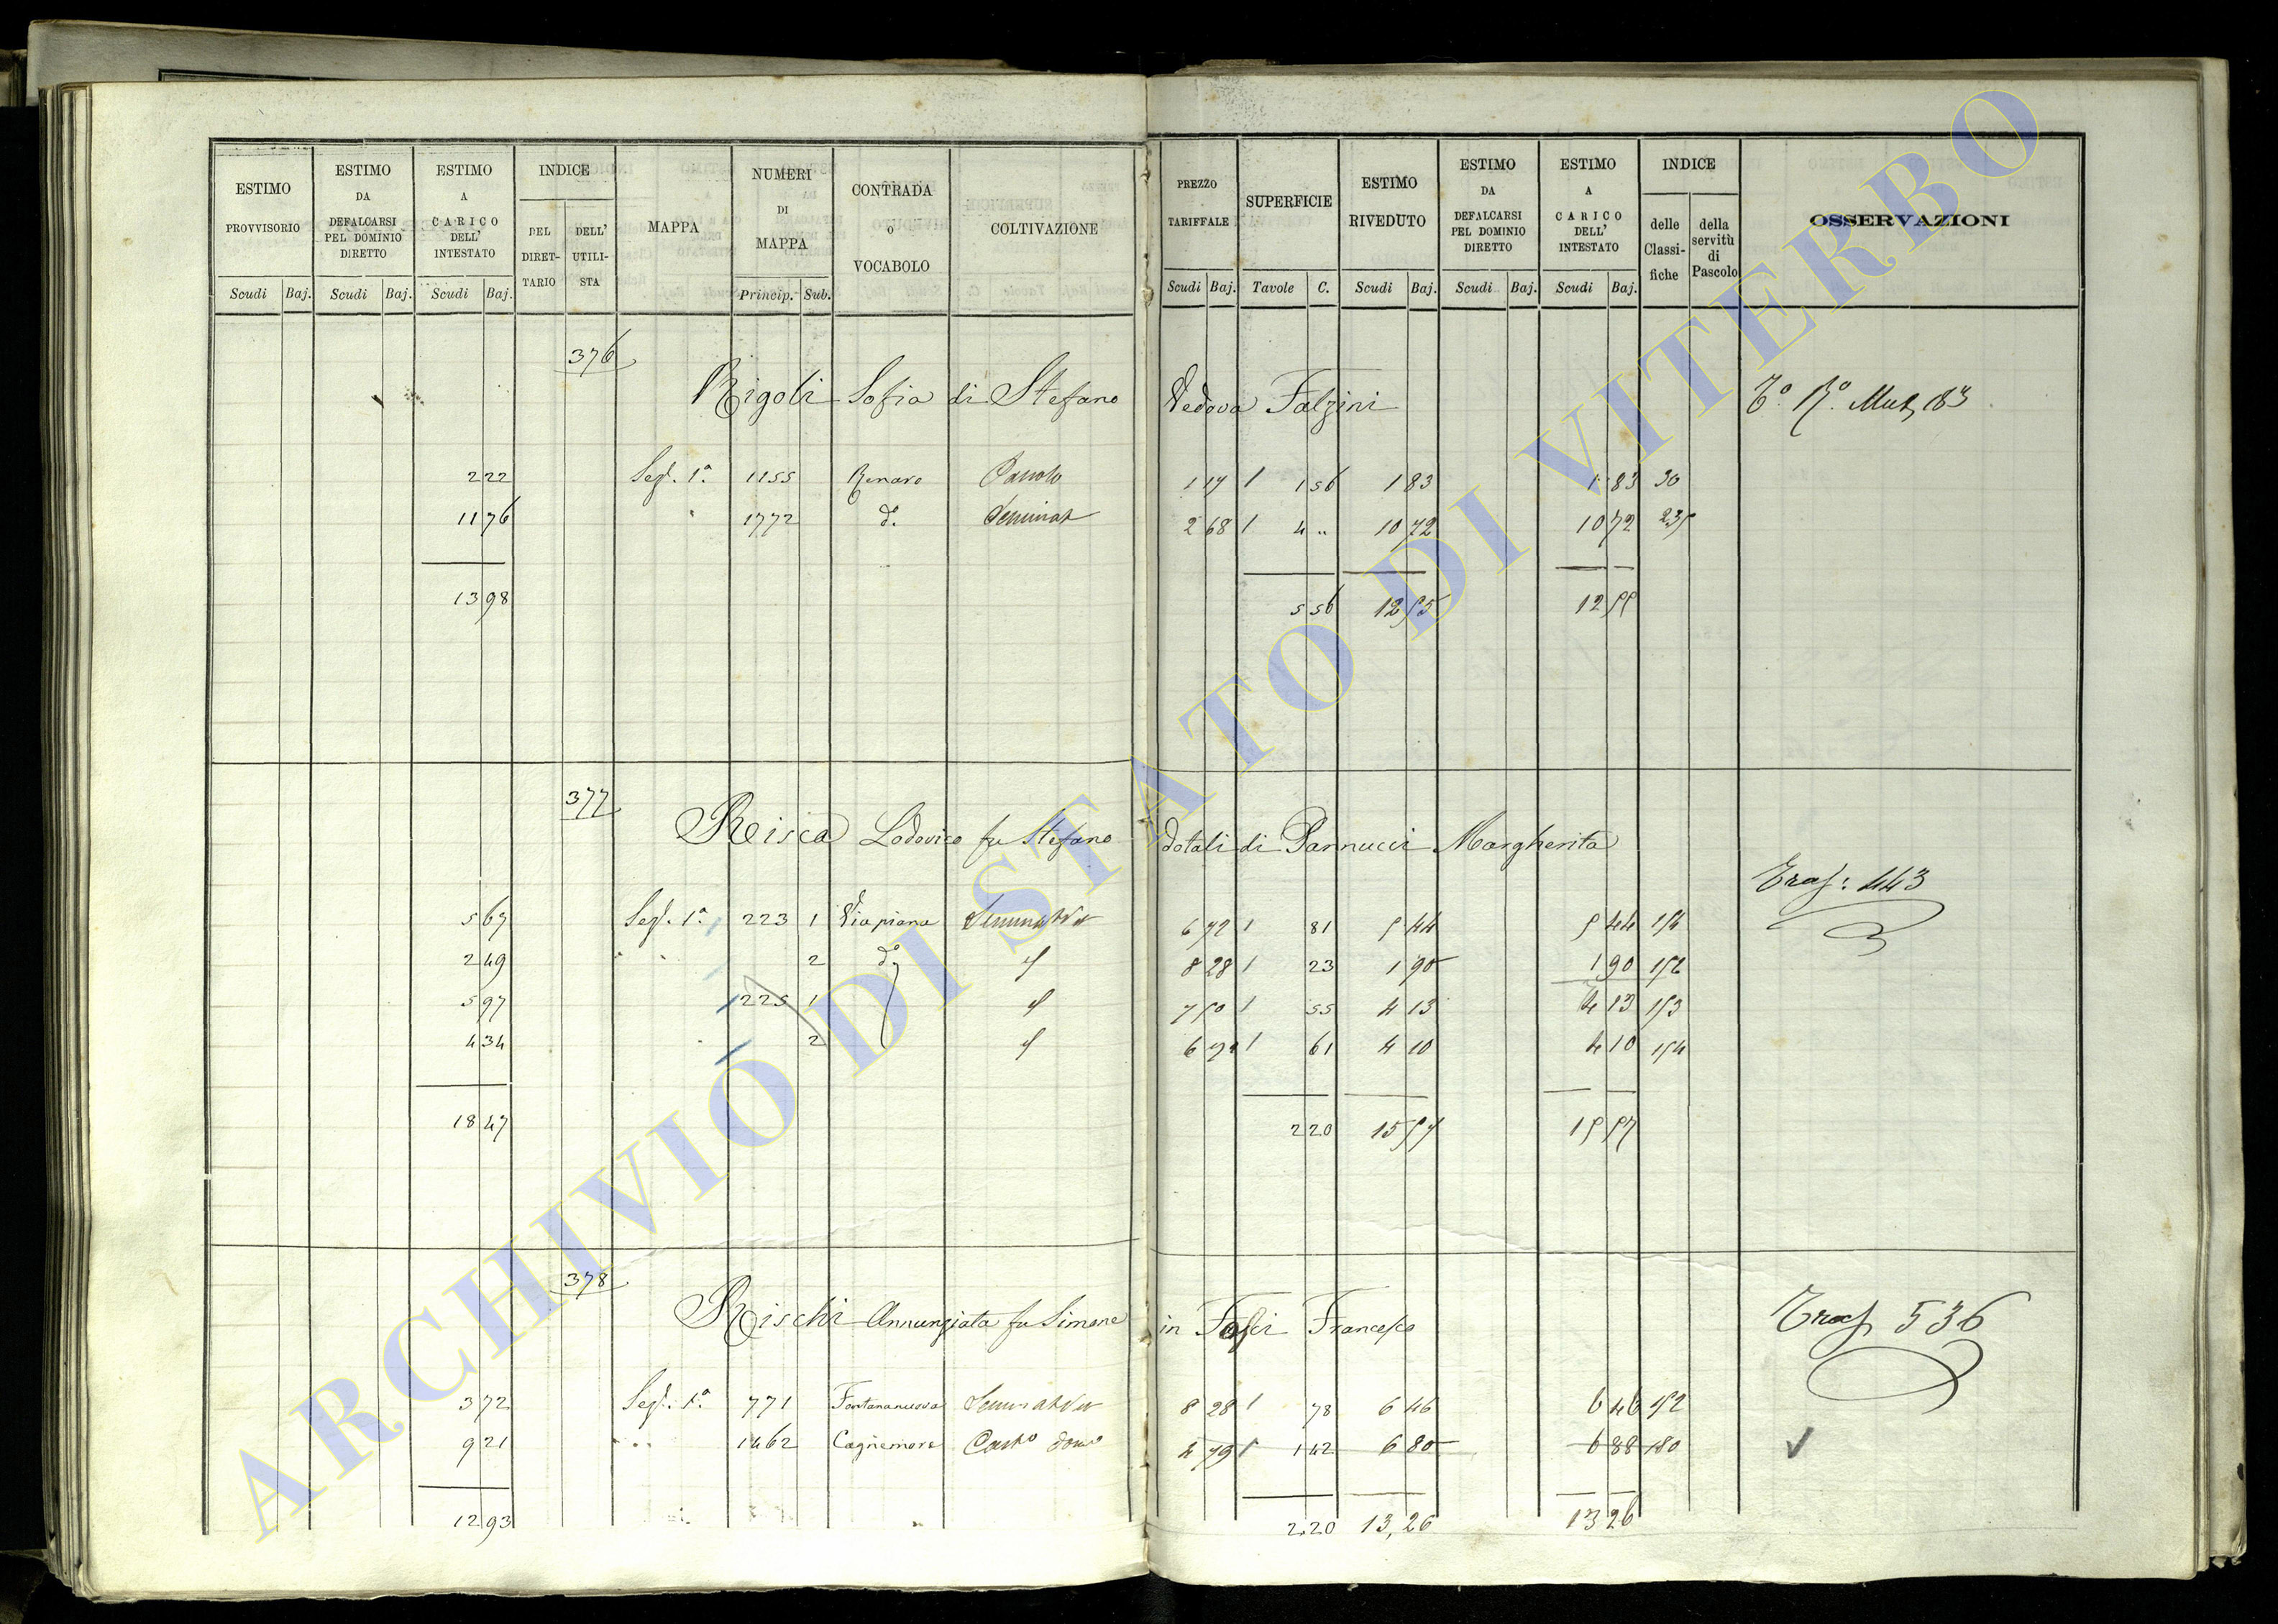 ESTIMO PROVVISORIO Scudi Baj.
ESTIMO DA DEFALCARSI PEL DOMINIO DIRETTO Scudi Baj.
ESTIMO A CARICO DELL' INTESTATO Scudi Baj.
INDICE DEL DIRET-TARIO DELL' UTILI-STA
MAPPA
NUMERI DI MAPPA Princip. Sub.
CONTRADA o VOCABOLO
COLTIVAZIONE
PREZZO TARIFFALE Scudi Baj.
SUPERFICIE Tavole C.
ESTIMO RIVEDUTO Scudi Baj.
ESTIMO DA DEFALCARSI PEL DOMINIO DIRETTO Scudi Baj.
ESTIMO A CARICO DELL' INTESTATO Scudi Baj.
INDICE delle Classi-fiche della servitù di Pascolo
OSSERVAZIONI
376
Rigoli Sofia di Stefano Vedova Falzini Mut 183
2 22 Sez. 1ª 1155 Renaro 1 17 1 1 56 1 83 1 83 30
11 76 1772 d.o Seminat 2 68 1 4 " 10 72 10 72
13 98 5 56 12 55 12 55
377
Risca Lodovico fu Stefano dotali di Pannucci Margherita
Trasf: 443
5 67 Sez. 1ª 223 1 Viapiana Seminat Vit 6 72 1 81 5 44 5 44 154
2 49 2 d.o 8 28 1 23 1 90 1 90 152
5 97 225 1 7 50 1 55 4 13 4 13 153
4 34 2 6 72 1 61 4 10 4 10 154
18 47 2 20 15 57 15 57
378
Rischi Annunziata fu Simone in Fasci Francesco Trasf 536
3 72 Sez. 1ª 771 Fontananuova Seminat Vit 8 28 1 78 6 46 6 46 152
9 21 1462 Cagnemora Cast.o dom.o 4 79 1 1 42 6 80 6 88 180
12 93 2 20 13,26 13 26
ARCHIVIO DI STATO DI VITERBO